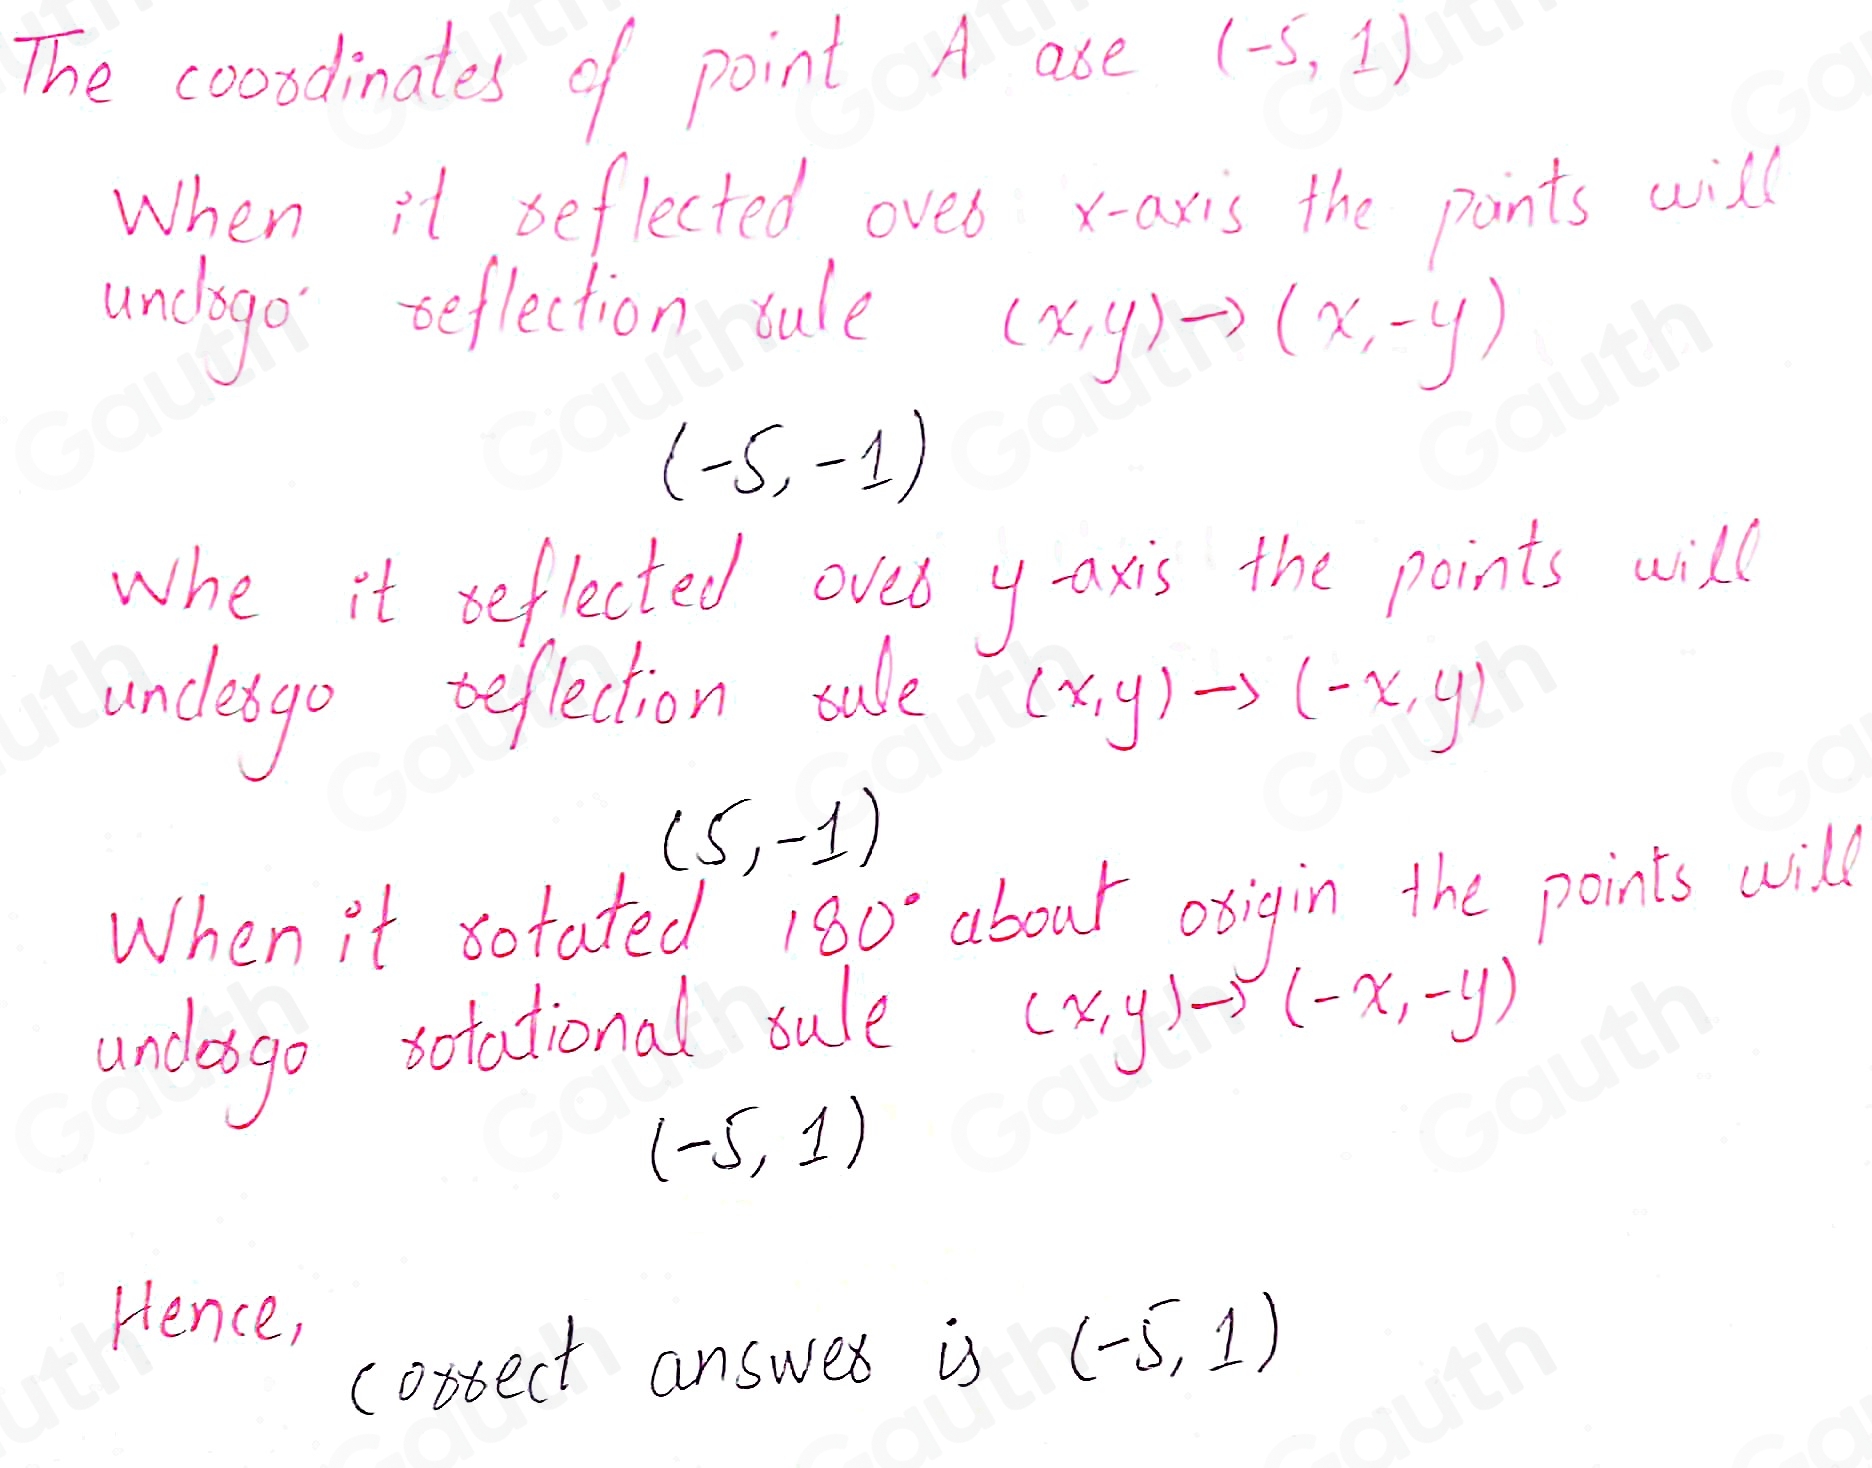 The coordinates of point A are (-5, 1)
When it reflected over x-axis the points will
undrgo reflection rule (x,y)→(x,-y)
(-5,-1)
Whe it reflected over y-axis the points will
undergo reflection rule (x,y)→(-x,y)
(5,-1)
When it rotated 180° about origin the points will
undergo rotational rule (x,y)→(-x,-y)
(-5, 1)
Hence,
correct answer is (-5, 1)